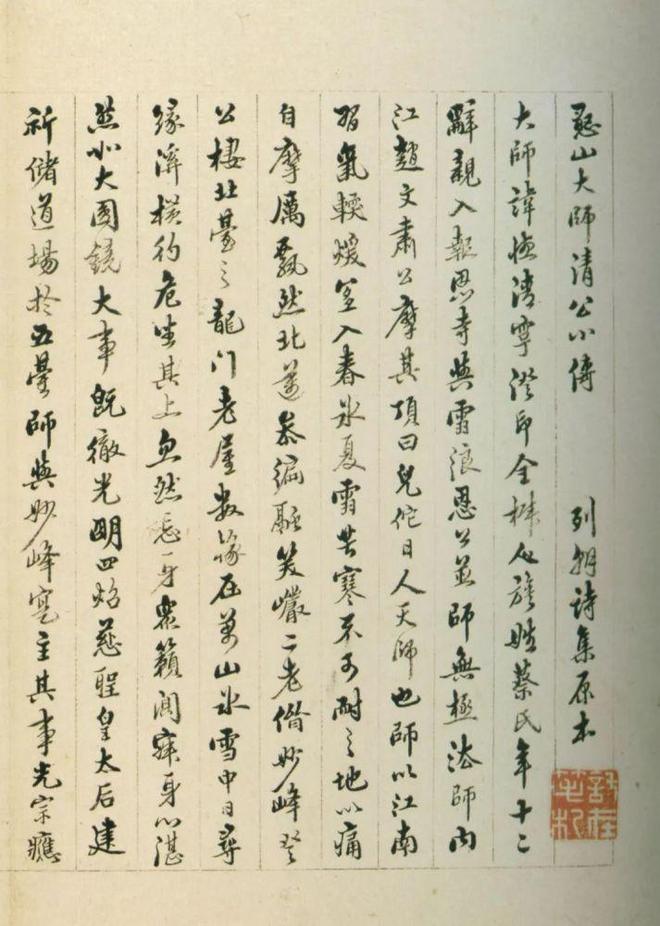 憨山大師清公小傳　列朝詩集原本
大師諱德清字澄印全椒人族姓蔡氏年十二
辭親入報恩寺與雪浪恩公並師無極法師內
江趙文肅公摩其頂曰兒佗日人天師也師以江南
習氣輭煖宜入春冰夏雪苦寒不可耐之地以痛
自摩厲飄然北邁參徧融笑巖二老偕妙峰登
公棲北臺之龍門老屋數椽在萬山冰雪中日尋
緣溪橫彴危坐其上忽然忘身衆籟闃寂身心湛
然如大圓鏡大事既徹光明四焰慈聖皇太后建
祈儲道場於五臺師與妙峰寔主其事光宗應